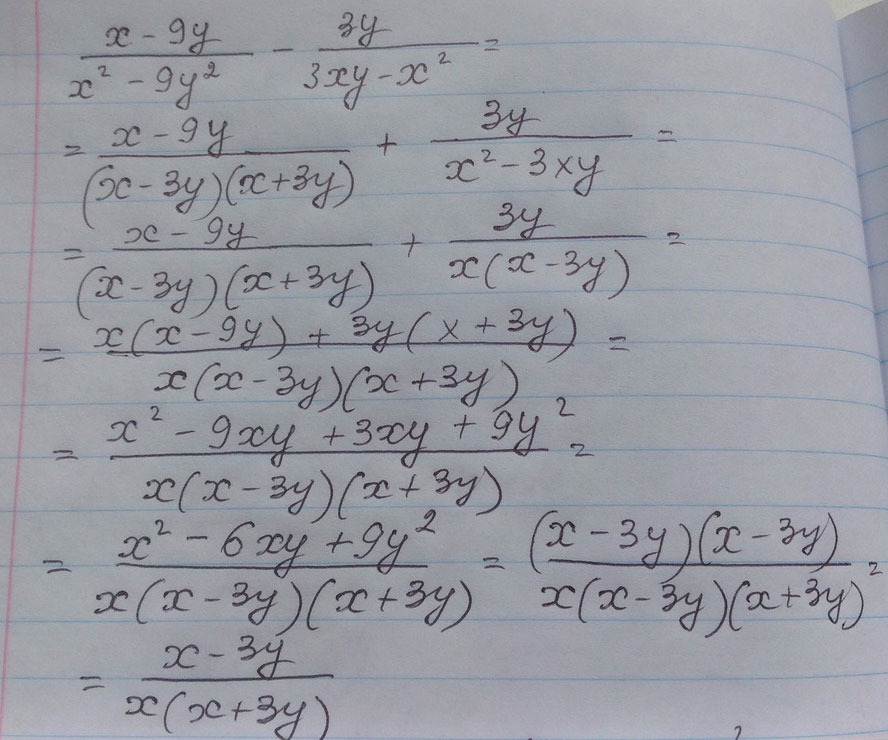 (x - 9y)/(x² - 9y²) - 3y/(3xy - x²) =
= (x - 9y)/((x - 3y)(x + 3y)) + 3y/(x² - 3xy) =
= (x - 9y)/((x - 3y)(x + 3y)) + 3y/(x(x - 3y)) =
= (x(x - 9y) + 3y(x + 3y))/(x(x - 3y)(x + 3y)) =
= (x² - 9xy + 3xy + 9y²)/(x(x - 3y)(x + 3y)) =
= (x² - 6xy + 9y²)/(x(x - 3y)(x + 3y)) = ((x - 3y)(x - 3y))/(x(x - 3y)(x + 3y)) =
= (x - 3y)/(x(x + 3y))